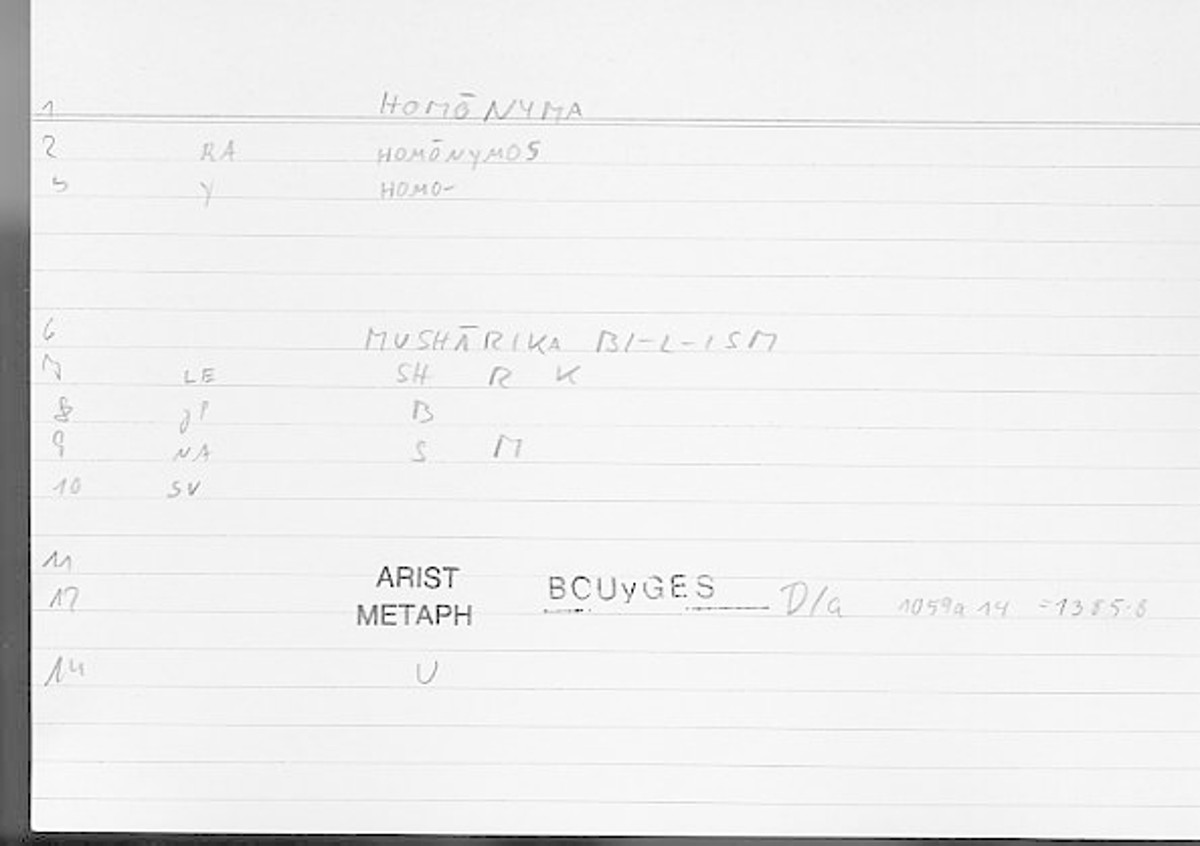 1 HOMŌNYMA
2 RA HOMŌNYMOS
3 Y HOMO-
6 MUSHĀRIKA BI-L-ISM
7 LE SH R K
8 B
9 NA S M
10 SU
11 ARIST BOUyGES D/a 1059a14 =1385.8
12 METAPH
14 U